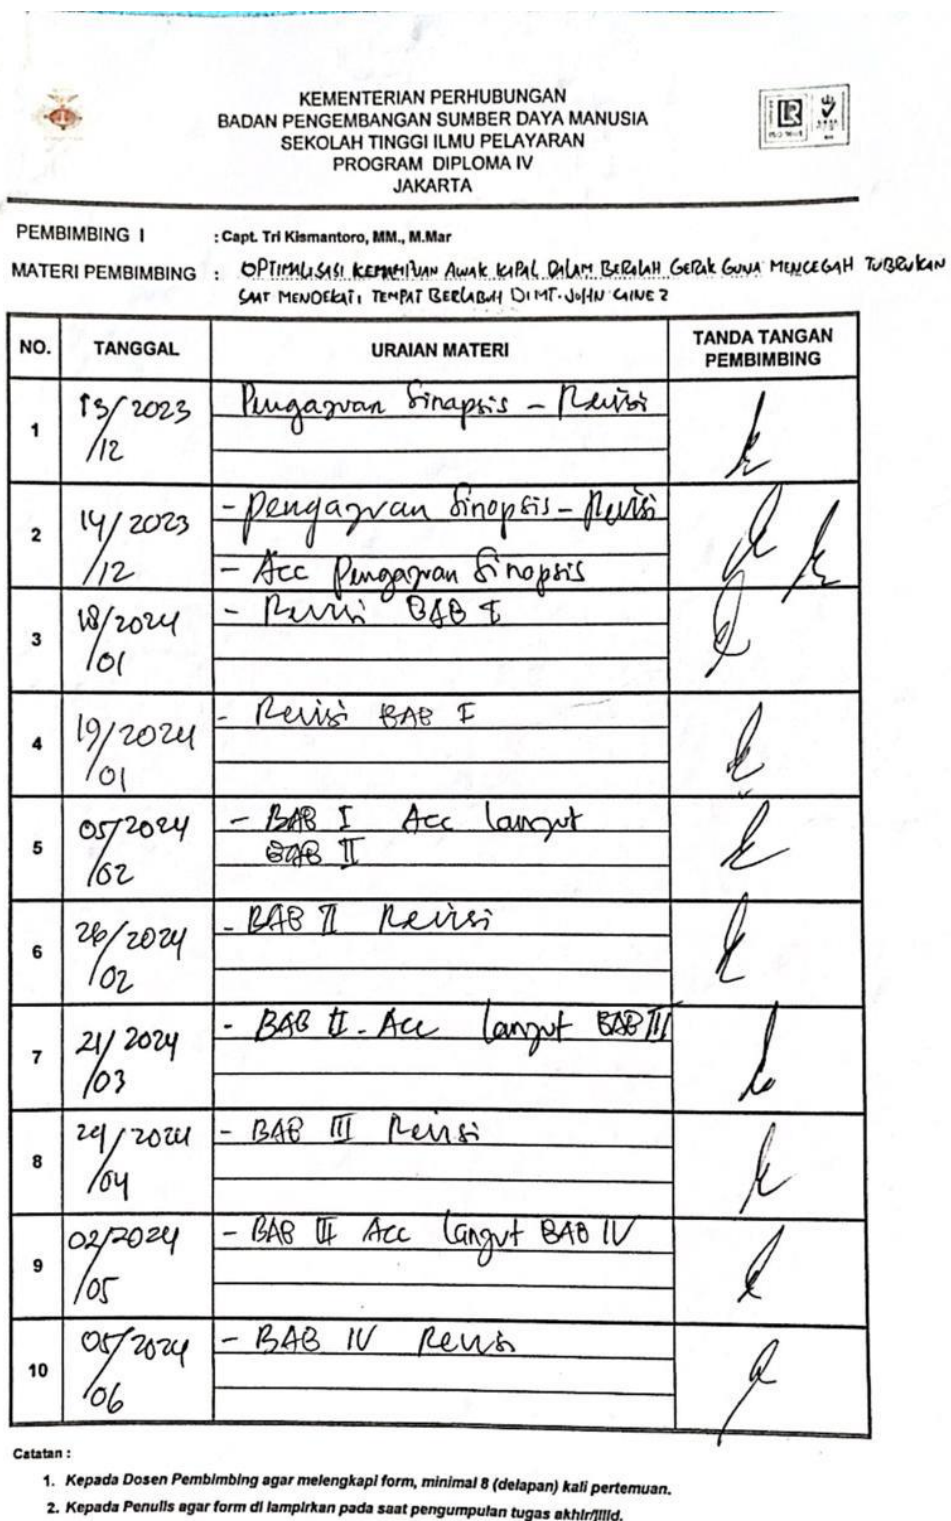 KEMENTERIAN PERHUBUNGAN
BADAN PENGEMBANGAN SUMBER DAYA MANUSIA
SEKOLAH TINGGI ILMU PELAYARAN
PROGRAM DIPLOMA IV
JAKARTA
LR
PEMBIMBING I : Capt. Tri Kismantoro, MM., M.Mar
MATERI PEMBIMBING : OPTIMALISASI KEMAMPUAN AWAK KAPAL DALAM BEROLAH GERAK GUNA MENCEGAH TUBRUKAN
SAAT MENDEKATI TEMPAT BERLABUH DI MT. JOHN CAINE 2
NO. TANGGAL URAIAN MATERI TANDA TANGAN PEMBIMBING
1 13/2023 /12 Pengajuan Sinapsis - Revisi
2 14/2023 /12 - Pengajuan Sinopsis - Revisi
- Acc Pengajuan Sinopsis
3 18/2024 /01 - Revisi BAB I
4 19/2024 /01 - Revisi BAB I
5 05/2024 /02 - BAB I Acc lanjut
BAB II
6 26/2024 /02 - BAB II Revisi
7 21/2024 /03 - BAB II - Acc lanjut BAB III
8 24/2024 /04 - BAB III Revisi
9 02/2024 /05 - BAB III Acc lanjut BAB IV
10 05/2024 /06 - BAB IV Revisi
Catatan :
1. Kepada Dosen Pembimbing agar melengkapi form, minimal 8 (delapan) kali pertemuan.
2. Kepada Penulis agar form di lampirkan pada saat pengumpulan tugas akhir/jilid.